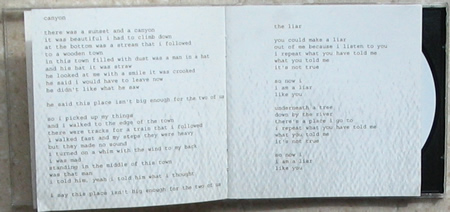 canyon
there was a sunset and a canyon
it was beautiful i had to climb down
at the bottom was a stream that i followed
to a wooden town
in this town filled with dust was a man in a hat
and his hat it was straw
he looked at me with a smile it was crooked
he said i would have to leave now
he didn't like what he saw
he said this place isn't big enough for the two of us
so i picked up my things
and i walked to the edge of the town
there were tracks for a train that i followed
i walked fast and my steps they were heavy
but they made no sound
i turned on a whim with the wind to my back
i was mad
standing in the middle of this town
was that man
i told him, yeah i told him what i thought
i say this place isn't big enough for the two of us
the liar
you could make a liar
out of me because i listen to you
i repeat what you have told me
what you told me
it's not true
so now i
i am a liar
like you
underneath a tree
down by the river
there's a place i go to
i repeat what you have told me
what you told me
it's not true
so now i
i am a liar
like you